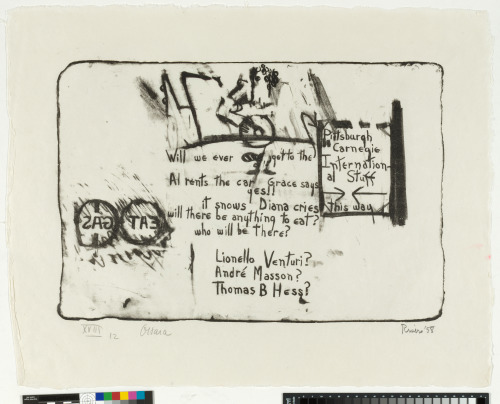 Will we ever get to the
Pittsburgh
Carnegie
Internation-
al Staff
this way
Al rents the car Grace says
yes!!
it snows Diana cries
will there be anything to eat?
who will be there?
GAS EAT
Lionello Venturi?
André Masson?
Thomas B Hess?
12 O'Hara Rivers '58